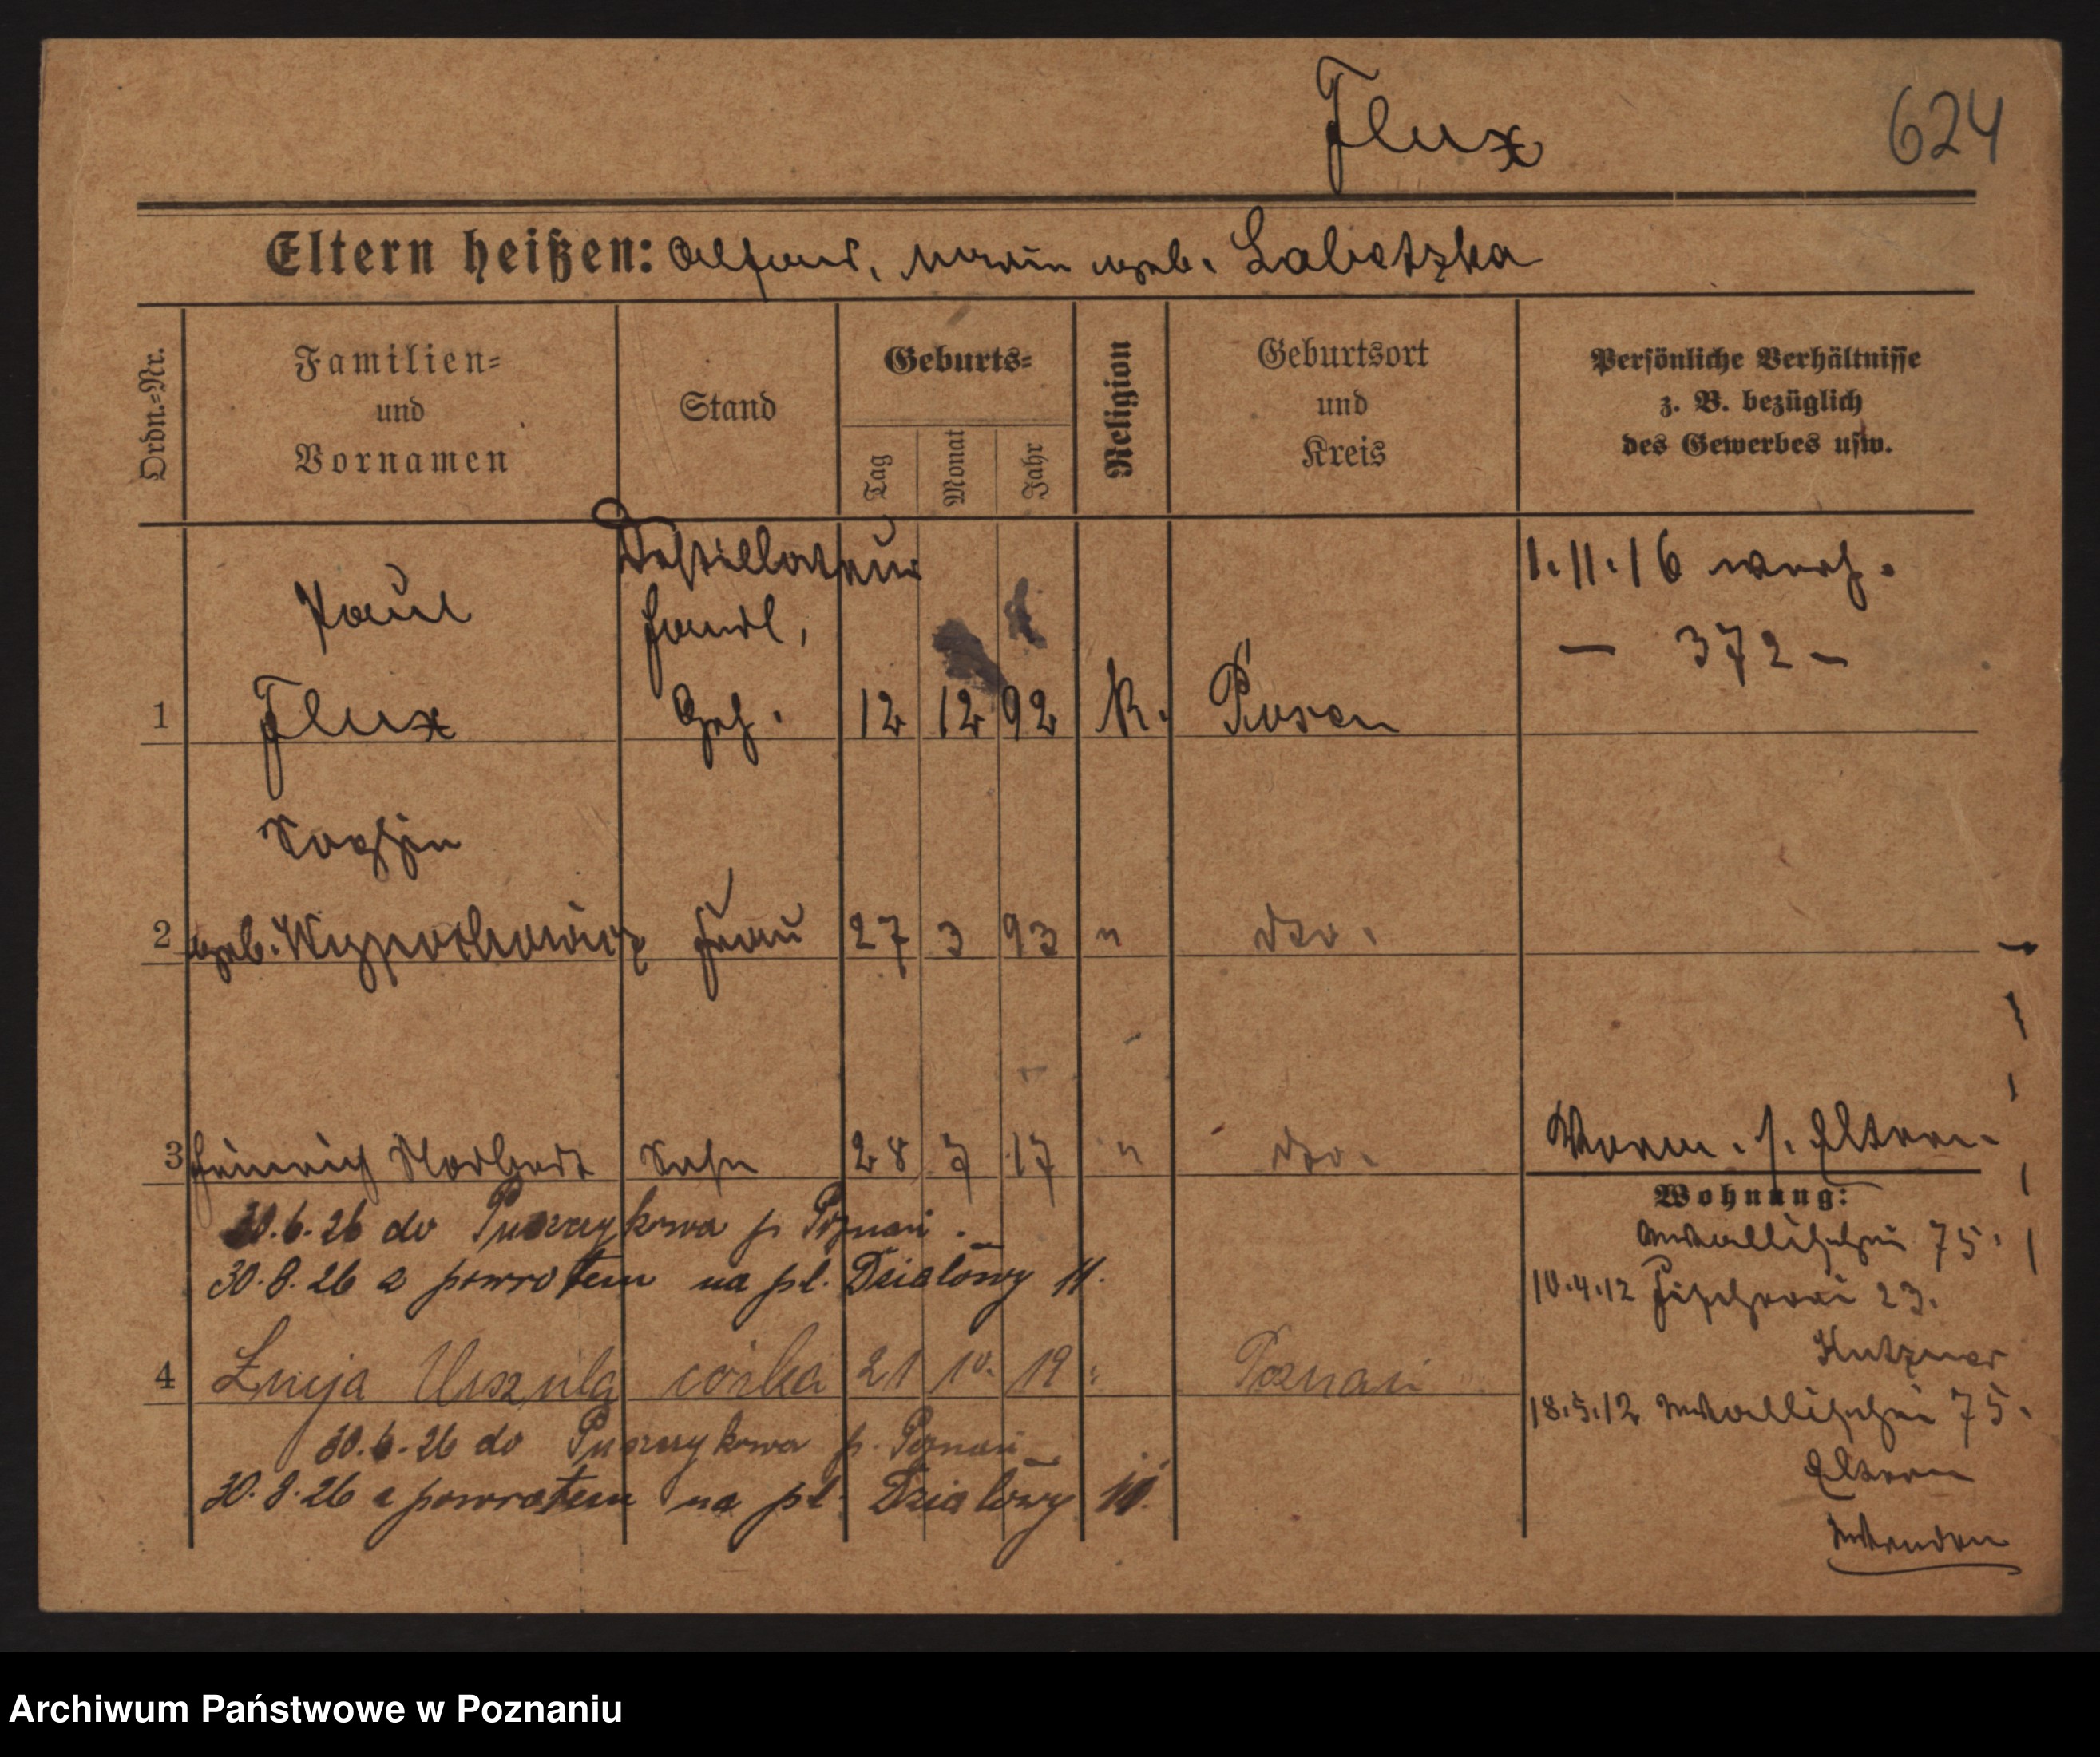 Flux
624
Eltern heißen: Alfons, Maria geb. Labetzka
Ordn.-Nr.
Familien-
und
Vornamen
Stand
Geburts-
Tag
Monat
Jahr
Religion
Geburtsort
und
Kreis
Persönliche Verhältnisse
z. B. bezüglich
des Gewerbes usw.
Destillateur
1.11.16 verh.
Paul
Handl,
— 372 —
1 Flux Geh. 12 12 92 K. Posen
Sophie
2 geb. Frau 27 3 93 " dto.
3 Heinrich Norbert Sohn 28 7 17 " dto.
Eltern
Wohnung:
30.6.26 do Puszczykowa p Poznań.
Wallischei 75.
30.8.26 z powrotem na pl. Działowy 11.
10.4.12 Fischerei 23.
Kutzner
4 Łucja Urszula córka 21 10. 19 " Poznań
18.5.12 Wallischei 75.
30.6.26 do Puszczykowa p. Poznań
Eltern
30.8.26 z powrotem na pl. Działowy 11.
Wenden
Archiwum Państwowe w Poznaniu